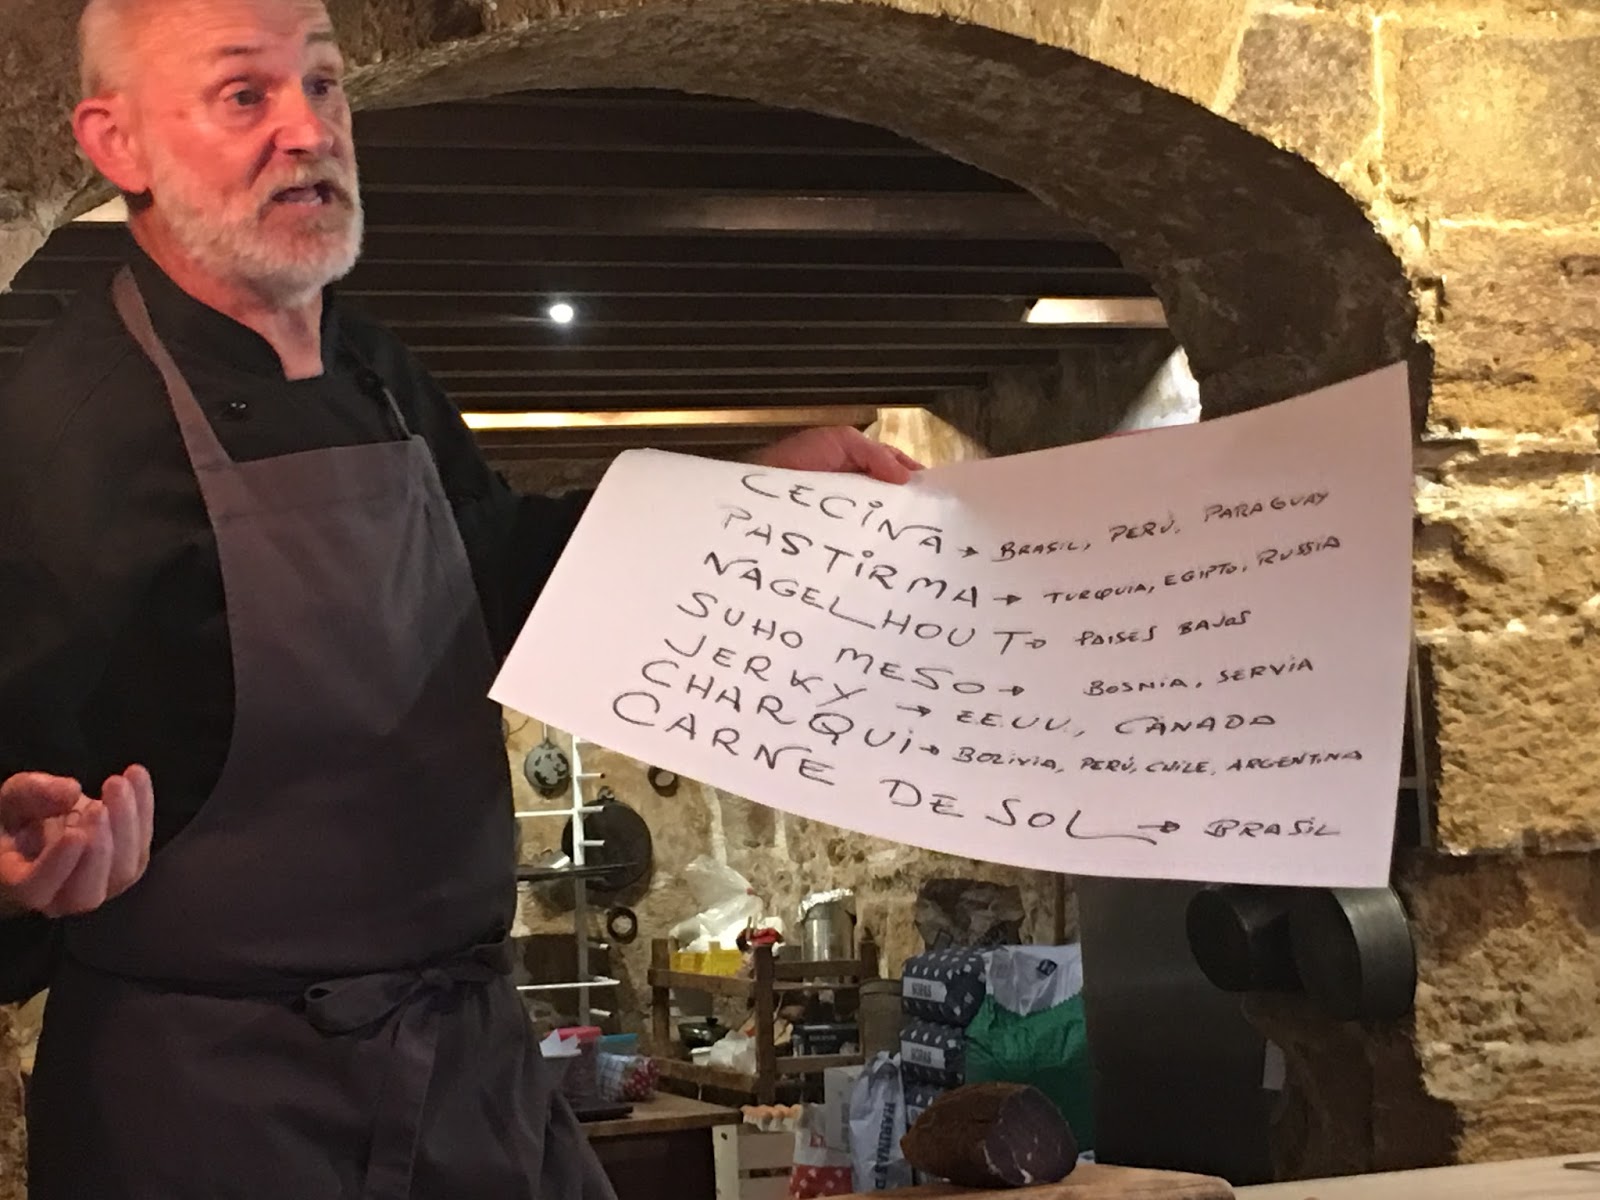 CECINA → BRASIL, PERÚ, PARAGUAY
PASTIRMA → TURQUIA, EGIPTO, RUSSIA
NAGELHOUT → PAISES BAJOS
SUHO MESO → BOSNIA, SERVIA
JERKY → EE.UU., CANADA
CHARQUI → BOLIVIA, PERÚ, CHILE, ARGENTINA
CARNE DE SOL → BRASIL
HARINAS D